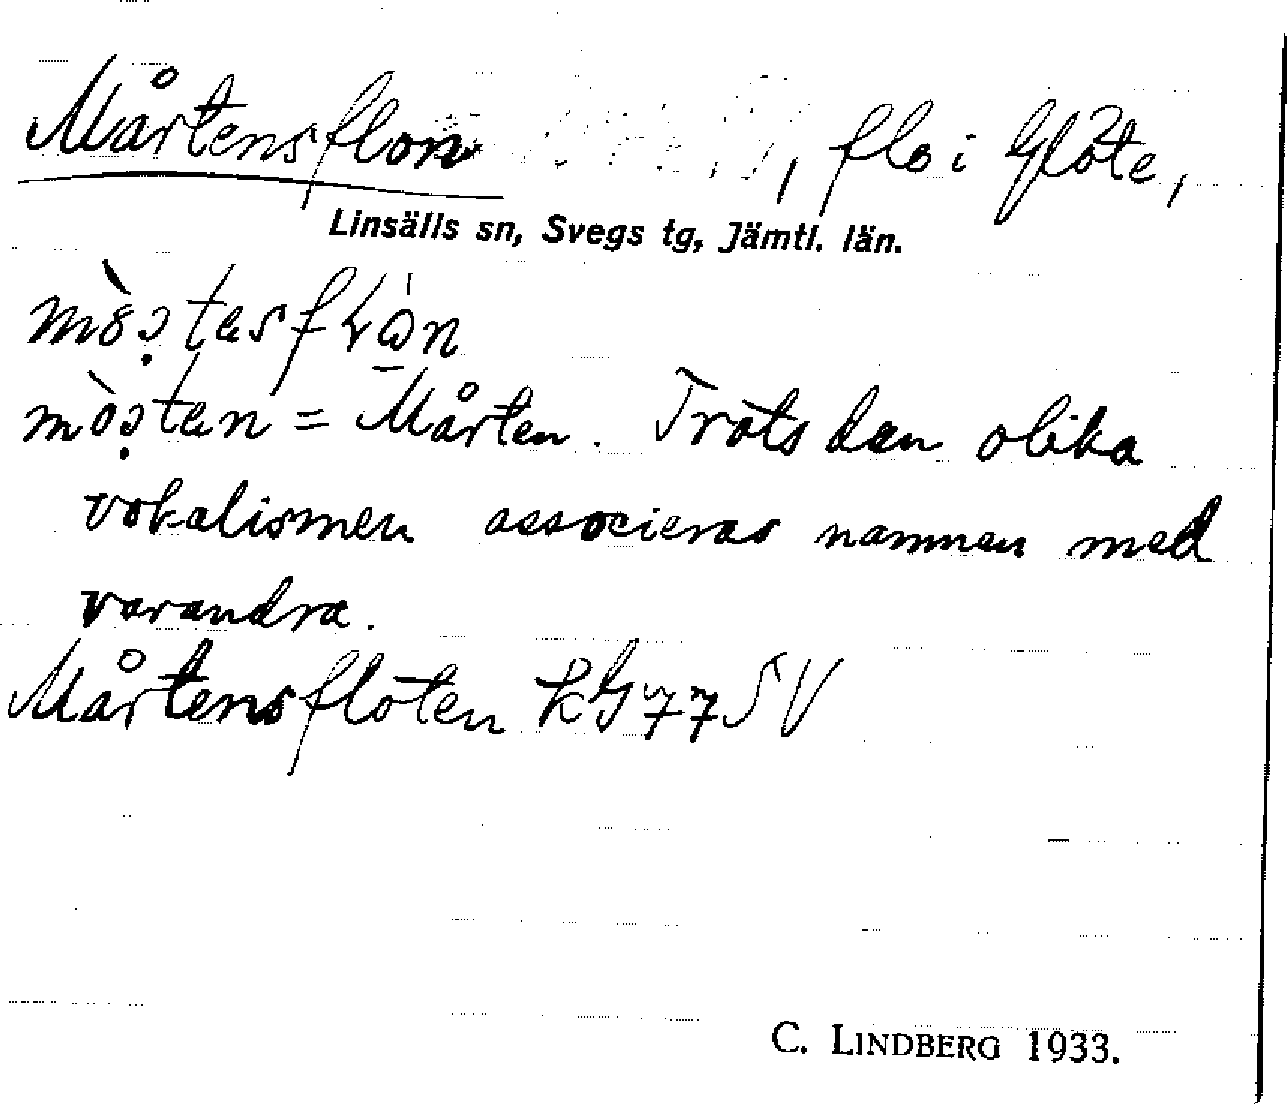 Mårtensflon, flo i Glöte,
Linsälls sn, Svegs tg, Jämtl. län.
= Mårten. Trots den olika
vokalismen associeras namnen med
varandra.
Mårtensflöten KG 77 SV
C. LINDBERG 1933.